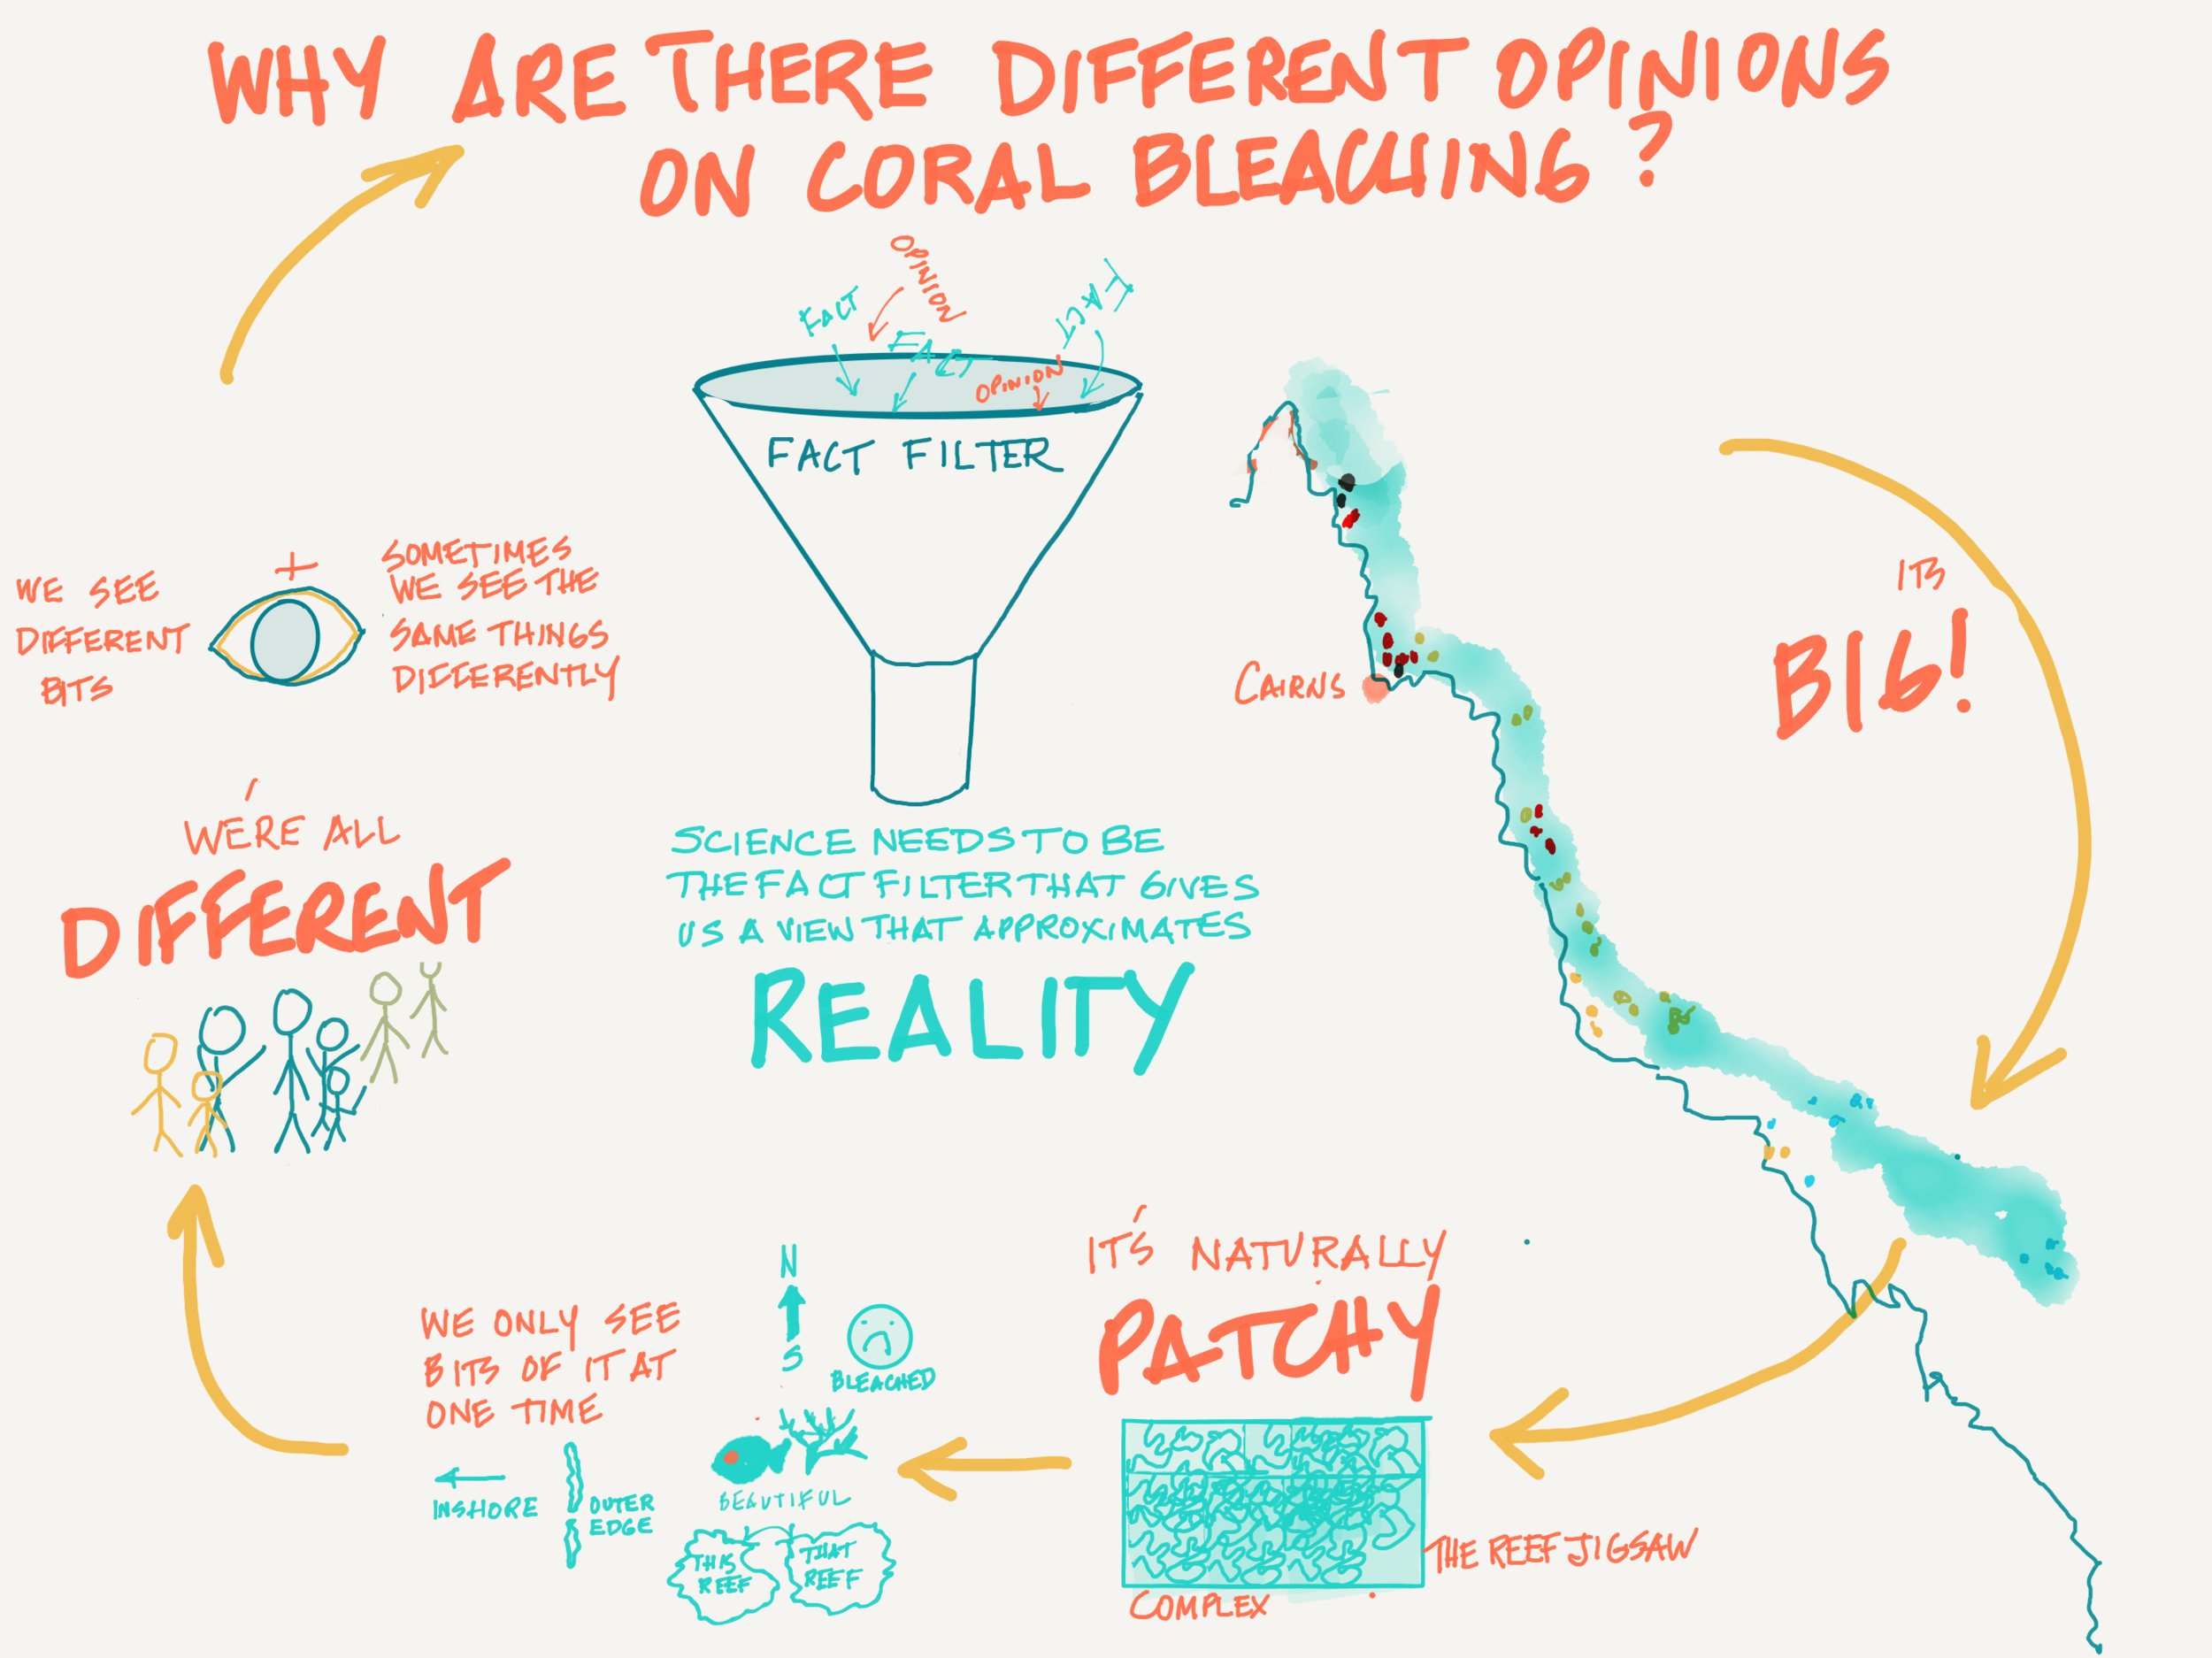 WHY ARE THERE DIFFERENT OPINIONS
ON CORAL BLEACHING?
OPINION
FACT
FACT
FACT
OPINION
FACT FILTER
SCIENCE NEEDS TO BE
THE FACT FILTER THAT GIVES
US A VIEW THAT APPROXIMATES
REALITY
CAIRNS
ITS
BIG!
IT'S NATURALLY
PATCHY
THE REEF JIGSAW
COMPLEX
N
S
BLEACHED
BEAUTIFUL
THIS
REEF
THAT
REEF
WE ONLY SEE
BITS OF IT AT
ONE TIME
INSHORE
OUTER
EDGE
WE'RE ALL
DIFFERENT
WE SEE
DIFFERENT
BITS
+
SOMETIMES
WE SEE THE
SAME THINGS
DIFFERENTLY